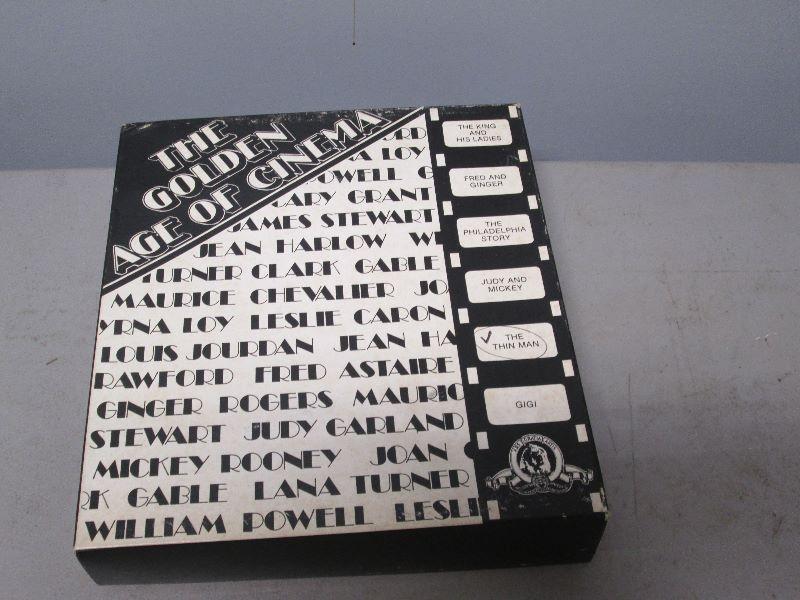 THE
GOLDEN
AGE OF CINEMA
RD
A LOY
POWELL G
CARY GRANT
JAMES STEWART
JEAN HARLOW
TURNER CLARK GABLE
MAURICE CHEVALIER JO
YRNA LOY LESLIE CARON
LOUIS JOURDAN JEAN HA
RAWFORD FRED ASTAIRE
GINGER ROGERS MAURIC
STEWART JUDY GARLAND
MICKEY ROONEY JOAN
RK GABLE LANA TURNER
WILLIAM POWELL LESLI
THE KING
AND
HIS LADIES
FRED AND
GINGER
THE
PHILADELPHIA
STORY
JUDY AND
MICKEY
THE
THIN MAN
GIGI